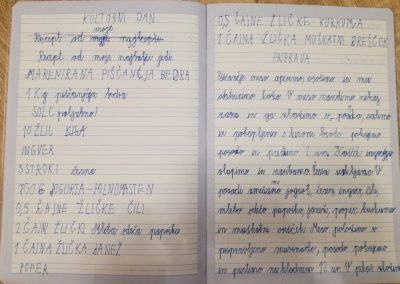 KULTURNI DAN
moje
Recept od najljubše
Recept od moje najljubše jedi
MARENIRANA PIŠČANČJA BEDRA
1 Kg piščančja bedra
SOL (po potrebi)
10 ŽLIC
INGVER
3 STROKI česna
200 G JOGURTA-POLNOMASTEN
0,5 ČAJNE ŽLIČKE ČILI
2 ČAJNI ŽLIČKI Mleta rdeča paprika
1 ČAJNA ŽLIČKA JANEŽ
POPER
0,5 ČAJNE ŽLIČKE KURKUMA
1 ČAJNA ŽLIČKA MUŠKATNI OREŠČEK
PRIPRAVA
Piščančje meso operemo, osušimo in mu
odstranimo kožo. V meso naredimo nekaj
zarez in ga zložimo v posodo, solimo
in pokapljamo s limono. Posodo pokrijemo
posodo in pustimo 1 uro. Košček ingverja
olupimo in nasekljamo česen
posodi zmešamo jogurt, česen, ingver, čili,
mleto rdečo papriko, janež, poper, kurkumo
in muškatni orešček. Meso položimo v
pripravljeno marinado, posodo pokrijemo
in pustimo na hladnem 12 ur. V pekač zložimo